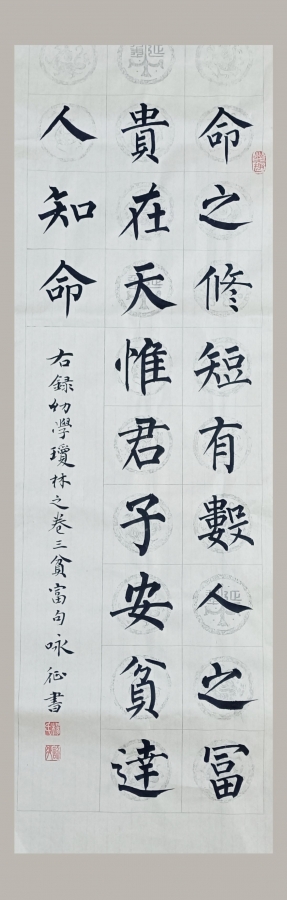 命之修短有數人之冨
貴在天惟君子安貧達
人知命
右録幼學瓊林之卷三貧富句咏征書